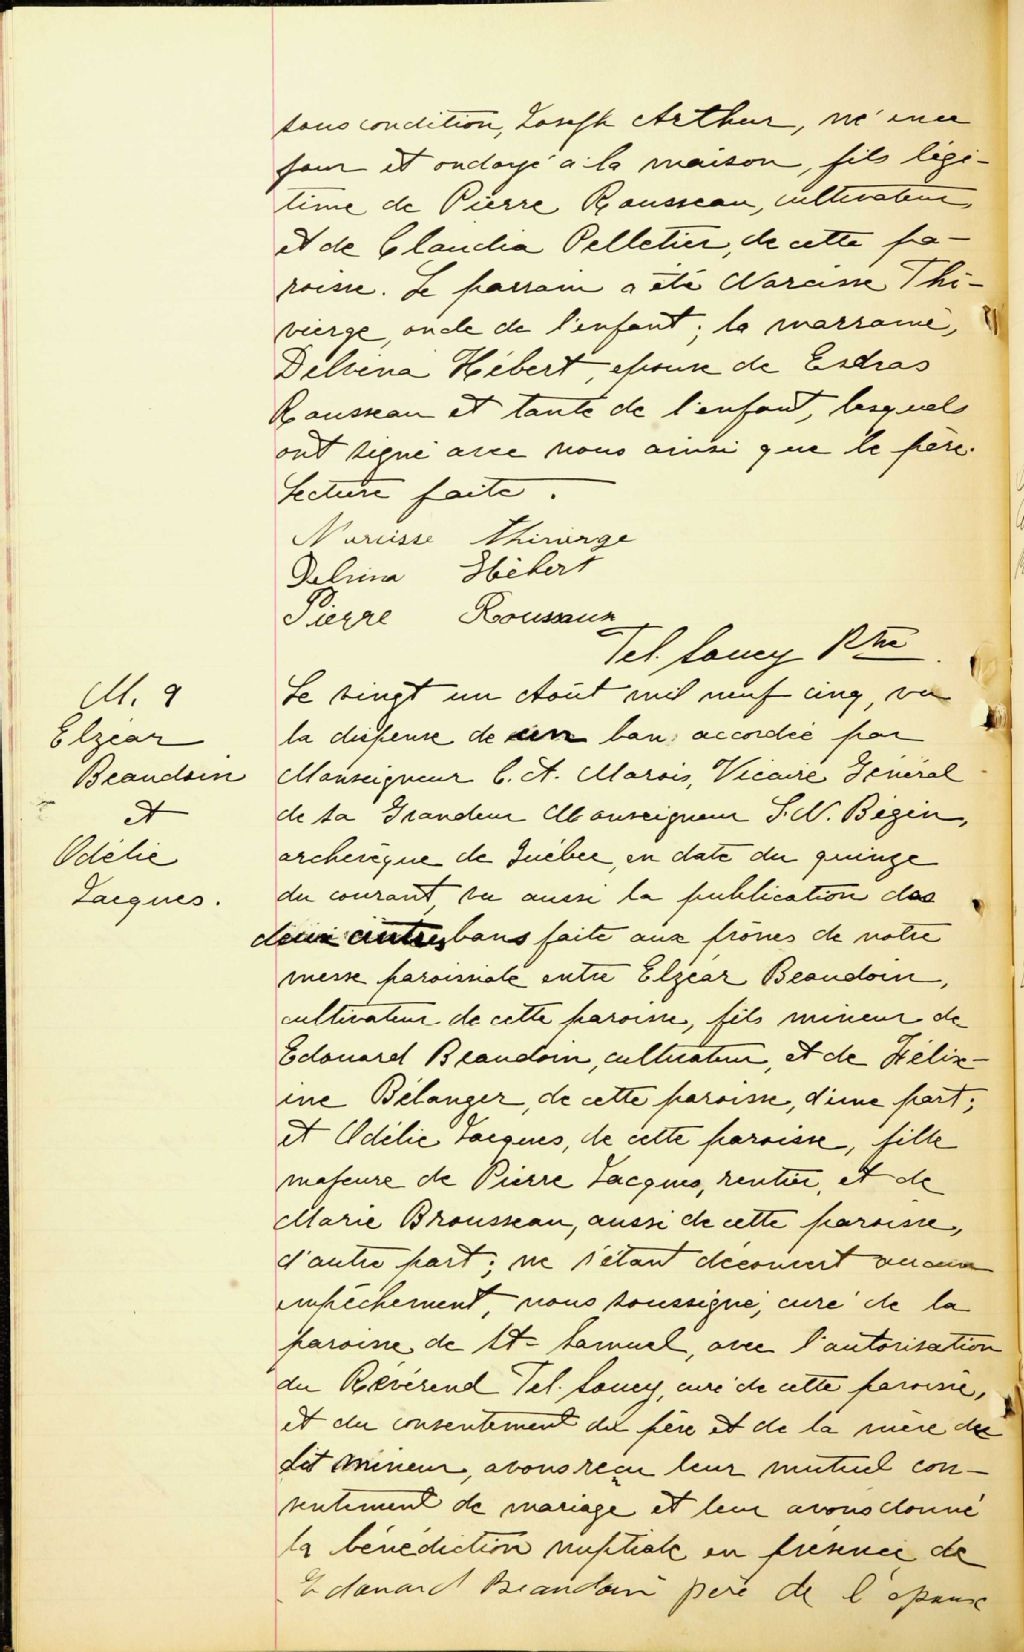 sous condition, Joseph Arthur, né en ce
jour et ondoyé à la maison, fils légi-
time de Pierre Rousseau, cultivateur,
et de Claudia Pelletier, de cette pa-
roisse. Le parrain a été Narcisse Thi-
vierge, oncle de l'enfant; la marraine,
Delvina Hébert, épouse de Esdras
Rousseau et tante de l'enfant, lesquels
ont signé avec nous ainsi que le père.
Lecture faite.
Narcisse Thivierge
Delvina Hébert
Pierre Rousseau
Tel. Soucy Ptre
M. 9
Elzéar
Beaudoin
et
Odélie
Jacques.
Le vingt un Août mil neuf cinq, vu
la dispense de un ban accordée par
Monseigneur C. A. Marois, Vicaire Général
de Sa Grandeur Monseigneur L. N. Bégin,
archevêque de Québec, en date du quinze
du courant, vu aussi la publication des
deux autres bans faite aux prônes de notre
messe paroissiale entre Elzéar Beaudoin,
cultivateur de cette paroisse, fils mineur de
Edouard Beaudoin, cultivateur, et de Félix-
ine Bélanger, de cette paroisse, d'une part;
et Odélie Jacques, de cette paroisse, fille
majeure de Pierre Jacques, rentier, et de
Marie Brousseau, aussi de cette paroisse,
d'autre part; ne s'étant découvert aucun
empêchement, nous soussigné, curé de la
paroisse de St-Samuel, avec l'autorisation
du Révérend Tel. Soucy, curé de cette paroisse,
et du consentement du père et de la mère du
dit mineur, avons reçu leur mutuel con-
sentement de mariage et leur avons donné
la bénédiction nuptiale en présence de
Edouard Beaudoin père de l'époux